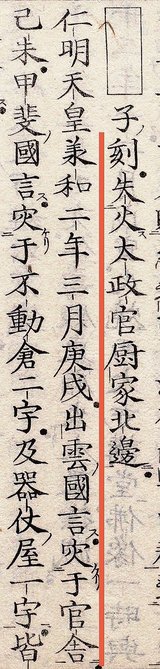 子刻朱火太政官厨家北邊
仁明天皇美和二年三月庚戌出雲國言灾于官舎
己未甲斐國言灾于不動倉二宇及器仗屋一宇皆